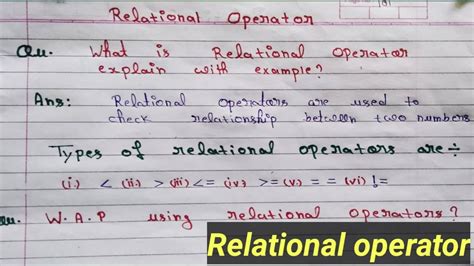 Relational Operator
Qu. What is Relational Operator
explain with example?
Ans: Relational operators are used to
check relationship between two numbers
Types of relational operators are÷
(i.) < (ii.) > (iii) <= (iv.) >= (v.) == (vi) !=
Qu. W.A.P using relational operators?
Relational operator